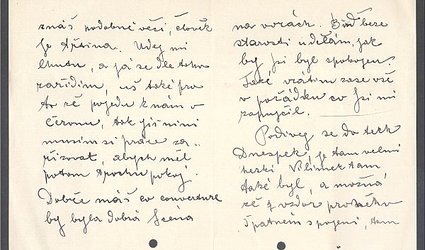 znáš podobné věci, člověk
je třtina. Udej mi
lhutu, a já se dle toho
zařídím, už také pro
to že pojedu k nám v
červnu, tak jinými
musím si práce za-
řizovat, abych měl
potom trochu pokoj.
Dobře máš co ouverture
by byla dobrá Scena
na vorách. Buď beze
starosti udělám, jak
by jsi byl spokojen.
Také vrátím zase vše
v pořádku co jsi mi
zapůjčil.
Podívej se do tech
Dnespek, je tam velmi
hezki Vlimek tam
také byl, a možná
že z vzdor
špatném spojení, tam